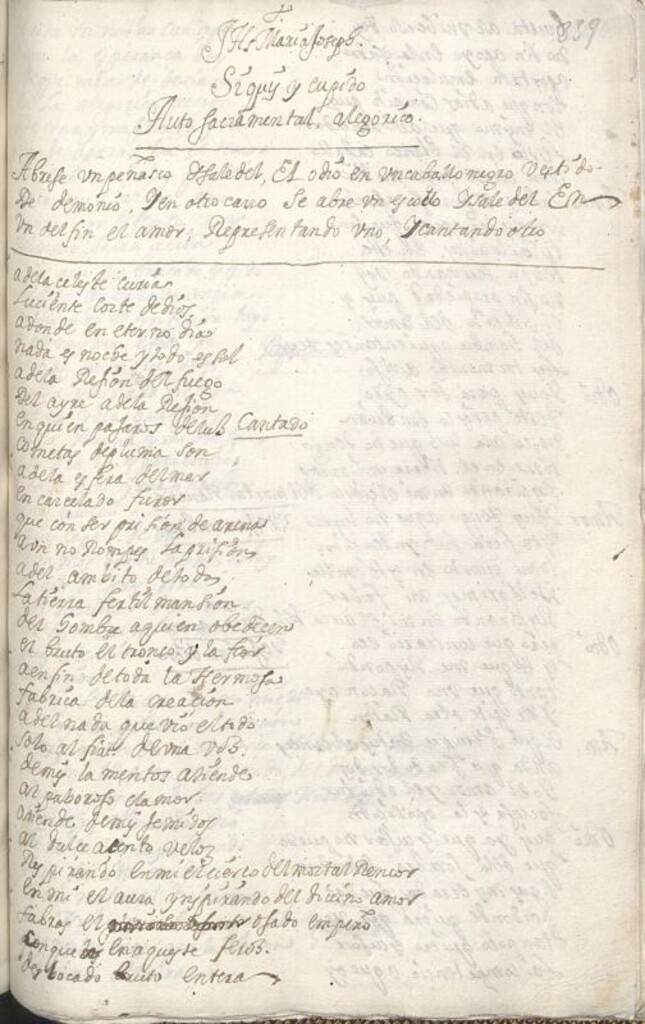 839
JHs. Maria Joseph.
Siquis y cupido
Auto sacramental. alegorico.
Abrese vn peñasco dsale del, El odio en vn caballo negro, Vestido
De demonio, Yen otro carro se abre vn escollo Ysale del En
Vn delfin el amor, Representando Vno, Ycantando otro
a dela celeste curia
Luciente corte dedios
adonde en eterno dia
nada es noche ytodo es sol
a dela Rejion del fuego
del ayre a dela Rejion
en quien pajaros delus Cantado
cometas depluma son
a dela esfera del mar
en carcelado furor
que con ser prision de arena
aun no Rompes la prision
a del ambito de todo
la tierra fertil mansion
del hombre aquien obedicen
el bruto el tronco y la flor
a en fin detoda la Hermosa
fabrica dela creacion
a del nada que vio el todo
solo al fiat de vna vos.
demis la mentos atiende
al paboroso clamor
atiende demis jemidos
al dulce acento velos
Respirando en mi el cierco del mortal Rencor
en mi el aura ynspirando del divino amor
sabras el osado empeño
conque en aqueste feros.
desbocado bruto entera